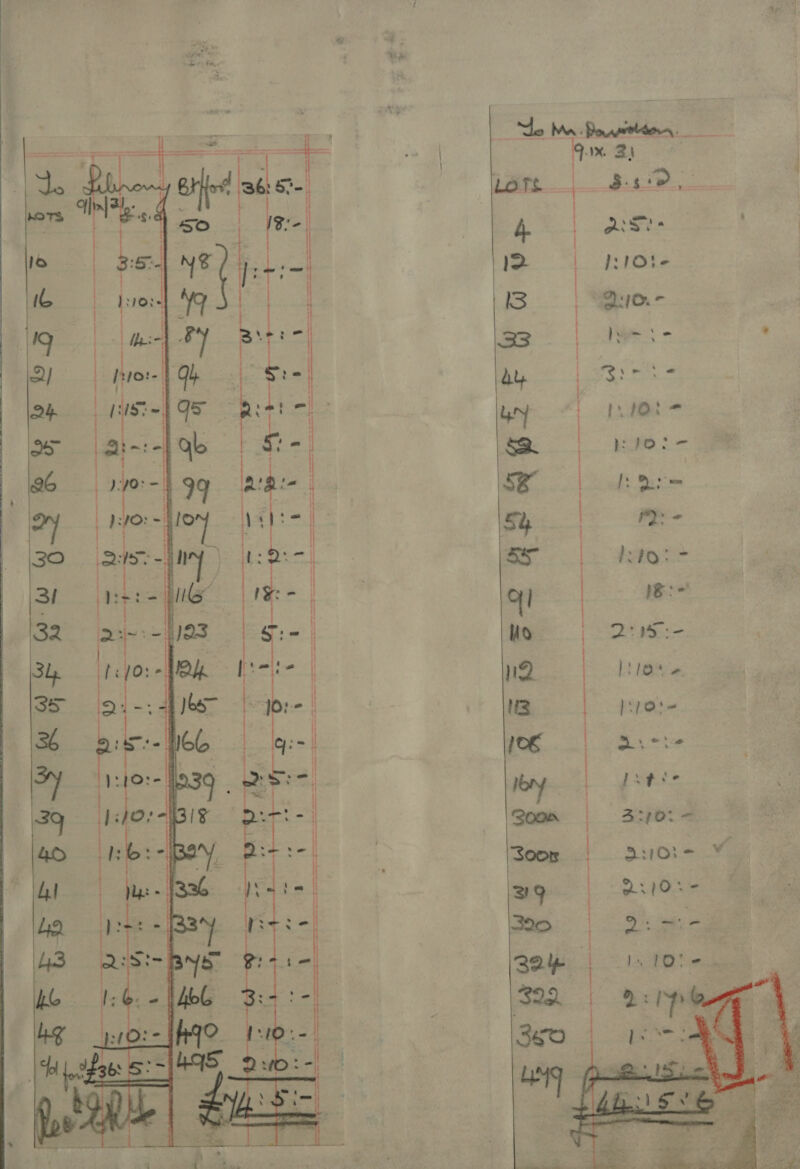 To Library
9/IX/31.
LOTS £.s.d
10 3:5:-
16 1:10:-
19 14:-
21 1:10:-
24 1:15:-
25 2:-:-
26 1:10:-
27 1:10:-
30 2:15:-
31 1:-:-
32 2:-:-
34 1:10:-
35 2:-:-
36 2:5:-
37 1:10:-
39 1:10:-
40 1:6:-
41 14:-
42 1:-:-
43 2:5:-
46 1:6:-
48 1:10:-
£36:5:-
36:5:-
50 18:-
48 } 1:-:-
49
87 3:-:-
94 5:-
95 2:-:-
96 5:-
99 2:2:-
107 1:1:-
117 1:2:-
116 18:-
123 5:-
124 1:-:-
165 10:-
166 9:-
239 2:5:-
318 2:-:-
327 2:-:-
336 1:-:-
337 1:-:-
375 8:-:-
466 3:-:-
490 1:10:-
495 2:10:-
£74:5:-
To Mr. Davidson.
9.IX.31
LOTS £.s.D.
4 2:5:-
12 1:10:-
13 2:10:-
33 1:-:-
44 3:-:-
47 1:10:-
52 1:10:-
58 1:2:-
54 12:-
55 1:10:-
91 18:-
110 2:15:-
112 1:10:-
113 1:10:-
108 2:-:-
167 1:-:-
300A 3:10:-
300B 2:10:-
319 2:10:-
320 2:-:-
324 1:10:-
322 2:17:6
350 1:-:-
479 2:15:-
£44:15:6